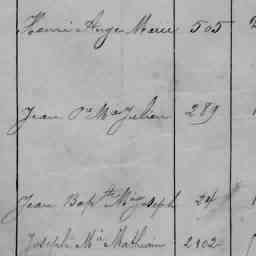 Henri Ange Marie 505
Jean Pre Me Julien 289
Jean Bapte Me Joseph 24
Joseph Me Mathurin 2102